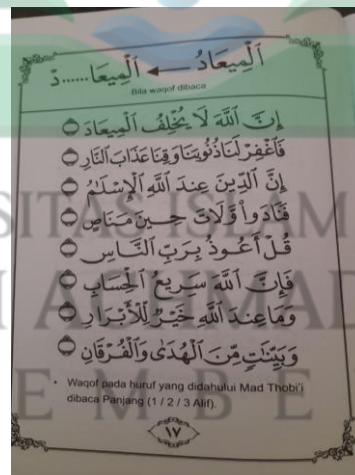 اَلْمِيعَادُ ← اَلْمِيعَا......دْ
Bila waqof dibaca
إِنَّ اللَّهَ لَا يُخْلِفُ الْمِيعَادَ
فَاغْفِرْ لَنَا ذُنُوبَنَا وَقِنَا عَذَابَ النَّارِ
إِنَّ الدِّينَ عِندَ اللَّهِ الْإِسْلَٰمُ
فَنَادَوا وَّلَاتَ حِينَ مَنَاصٍ
قُلْ أَعُوذُ بِرَبِّ النَّاسِ
فَإِنَّ اللَّهَ سَرِيعُ الْحِسَابِ
وَمَا عِندَ اللَّهِ خَيْرٌ لِّلْأَبْرَارِ
وَبَيِّنَٰتٍ مِّنَ الْهُدَىٰ وَالْفُرْقَانِ
• Waqof pada huruf yang didahului Mad Thobi'i
dibaca Panjang (1 / 2 / 3 Alif).
١٧